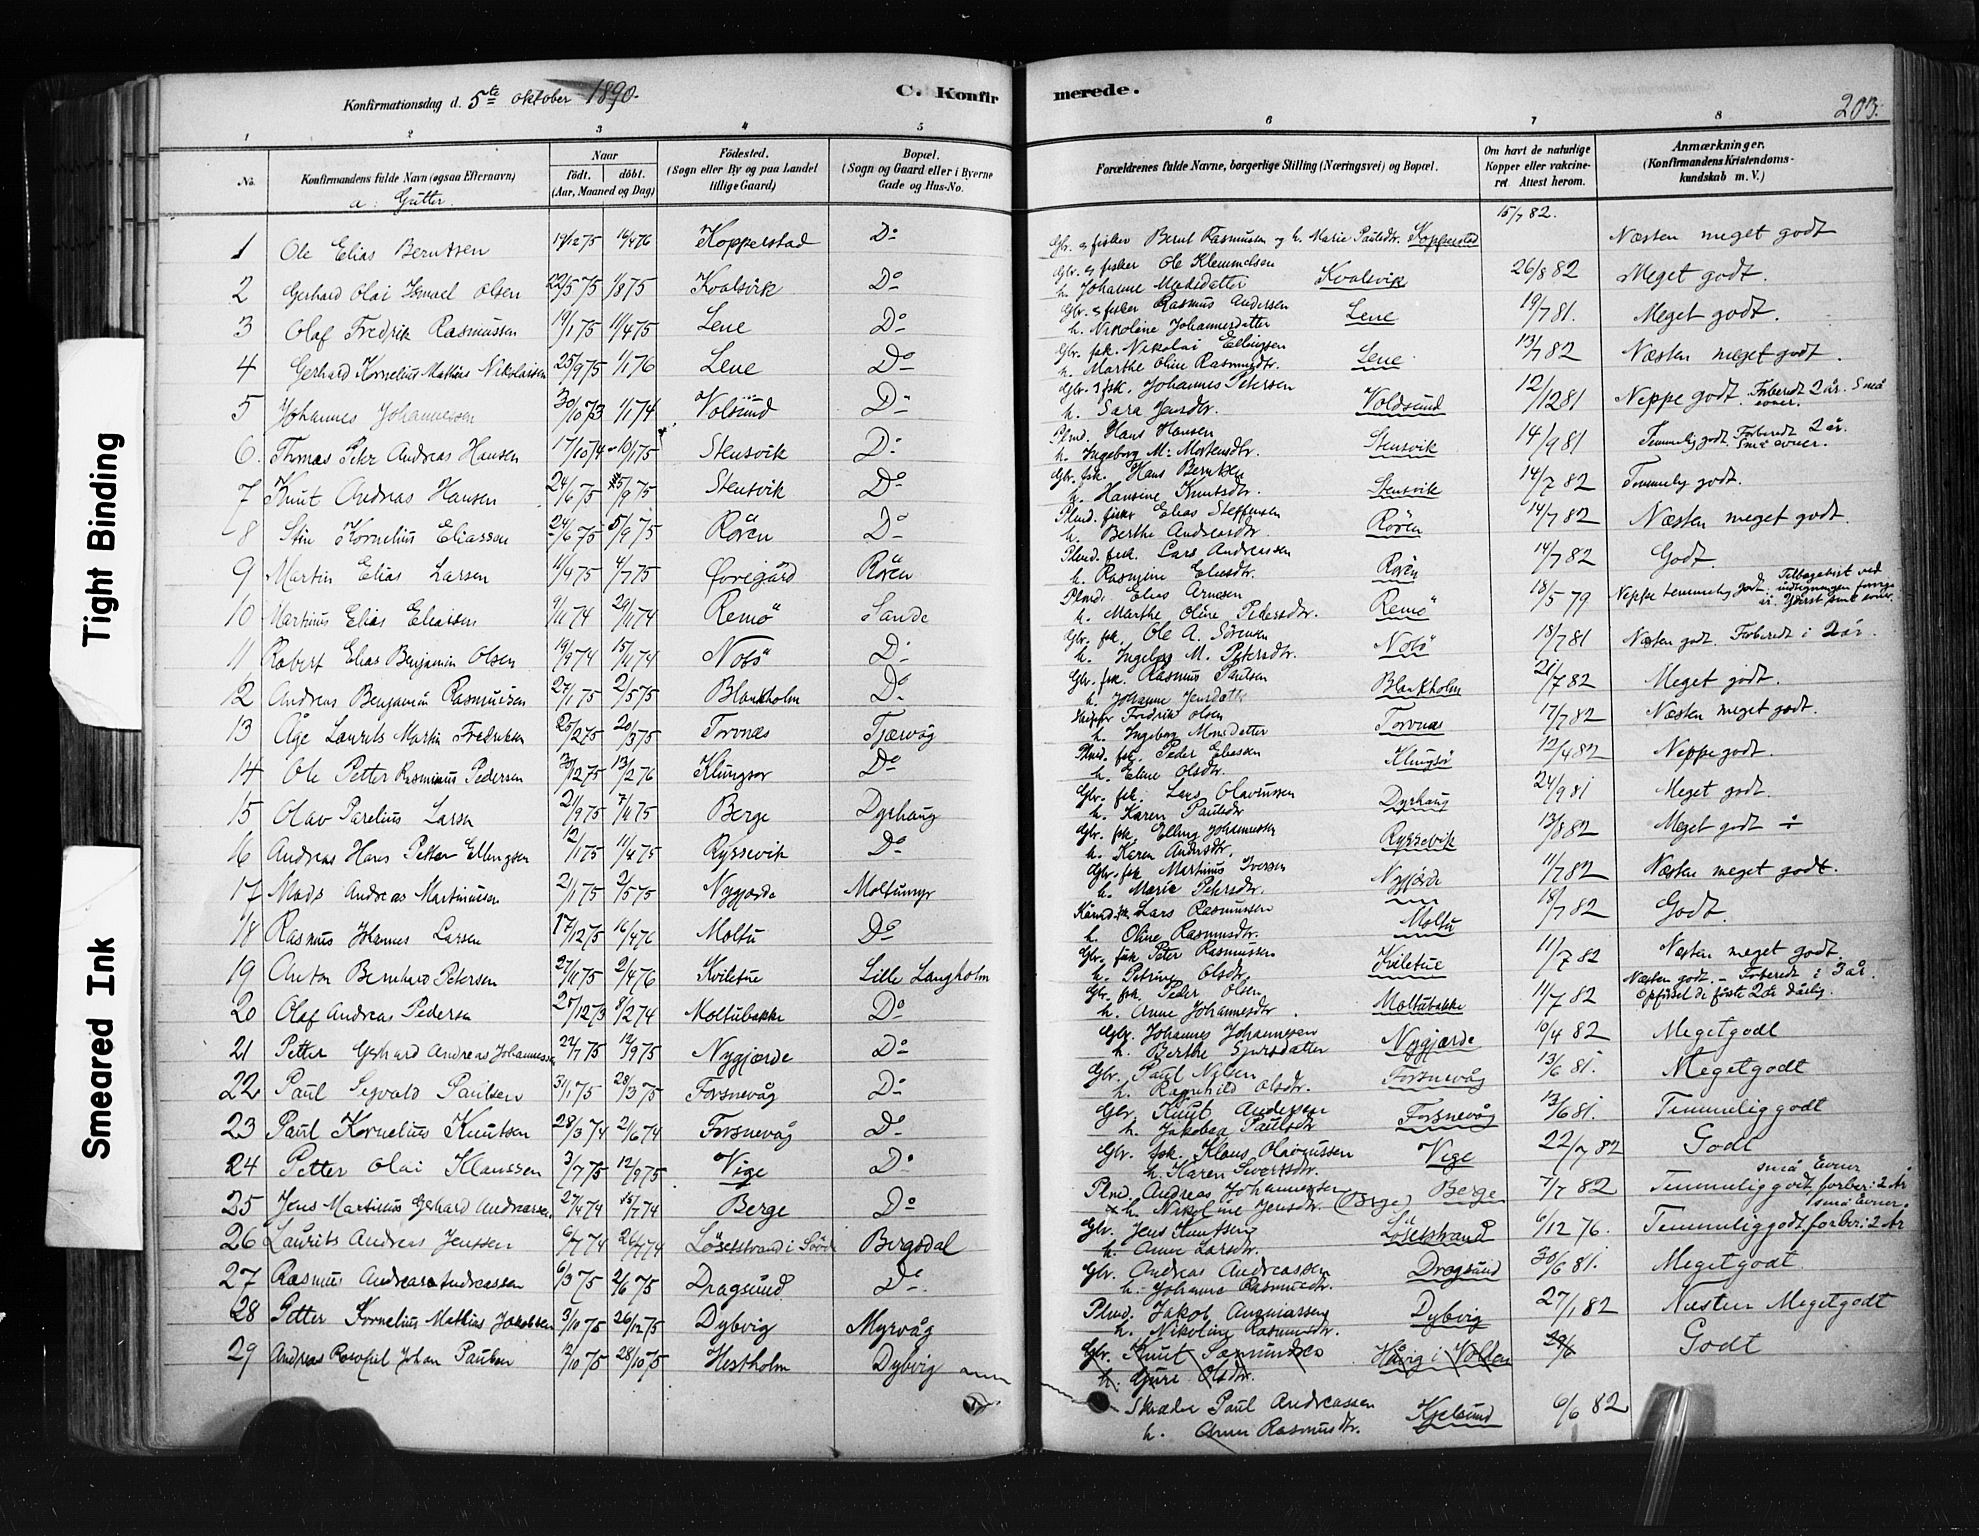 Konfirmationsdag d. 5te oktober 1890.
C. Konfirmerede.
203.
1 2 3 4 5 6 7 8
No.
Konfirmandens fulde Navn (ogsaa Efternavn)
a: Gutter.
Naar
født. døbt.
(Aar, Maaned og Dag)
Fødested.
(Sogn eller By og paa Landet tillige Gaard)
Bopæl.
(Sogn og Gaard eller i Byerne Gade og Hus-No.
Forældrenes fulde Navne, borgerlige Stilling (Næringsvei) og Bopæl.
Om havt de naturlige Kopper eller vakcineret Attest herom.
Anmærkninger.
(Konfirmandens Kristendomskundskab m. V.)
1 Ole Elias Berntsen 19/12 75 16/4 76 Kopperstad Do Gbr. og fisker Bernt Rasmussen og h. Marie Paulsdtr. Kopperstad 15/7 82. Næsten meget godt
2 Gerhard Olai Ismael Olsen 22/5 75 1/8 75 Kvalsvik Do Gbr. og fisker Ole Klemmetsen
h. Johanne Madsdatter Kvalsvik 26/8 82 Meget godt.
3 Olaf Fredrik Rasmussen 19/1 75 11/4 75 Lene Do Gbr. & fisker Rasmus Andersen
h. Nikoline Johannesdatter Lene 19/7 81. Meget godt.
4 Gerhard Kornelius Mathias Nikolaisen 25/9 75 1/1 76 Lene Do Gbr. fsk. Nikolai Ellingsen
h. Marthe Oline Rasmusdtr. Lene 13/7 82 Næsten meget godt.
5 Johannes Johannessen 30/10 73 1/1 74 Volsund Do Gbr. & fsk. Johannes Petersen
h. Sara Jensdtr. Voldsund 12/12 81 Neppe godt. Forberedt 2 år. Små evner.
6. Thomas Peter Andreas Hansen 17/10 74 10/1 75 Stensvik Do Plmd. Hans Hansen
h. Ingeborg M. Mortensdtr. Stensvik 14/9 81 Temmelig godt. Forberedt 2 år. Små evner.
7 Knut Andreas Hansen 24/6 75 5/9 75 Stensvik Do Gbr. fsk. Hans Berntsen
h. Hansine Knutsdtr. Stensvik 14/7 82 Temmelig godt.
8 Kornelius Eliassen 24/6 75 5/9 75 Røren Do Plmd. fisker Elias Steffensen
h. Berthe Andreasdtr. Røren 14/7 82 Næsten meget godt.
9 Martin Elias Larsen 11/4 75 4/7 75 Øvregård Røren Plmd. fsk. Lars Andreassen
h. Rasmine Eliasdtr. Røren 14/7 82 Godt.
10 Martinus Elias Eliassen 9/11 74 29/11 74 Remø Sande Plmd. Elias Arnesen
h. Marthe Oline Pedersdtr. Remø 18/5 79 Neppe temmelig godt. Tilbagevist ved udtegningen forrige år. Yderst små evner.
11 Robert Elias Benjamin Olsen 19/9 74 15/11 74 Notø Do Gbr. fsk. Ole A. Sørensen
h. Ingeborg M. Petersdtr. Notø 18/7 81 Næsten godt. Forberedt i 2 år.
12 Andreas Benjamin Rasmussen 27/1 75 2/5 75 Blankholm Do Gbr. fsk. Rasmus Paulsen
h. Johanne Jensdatter Blankholm 21/7 82 Meget godt.
13 Åge Laurits Martin Fredriksen 25/2 75 20/3 75 Torvnæs Tjærvåg Skipper Fredrik Olsen
h. Ingeborg Monsdatter Torvnæs 17/7 82 Næsten meget godt.
14 Ole Petter Rasminus Pedersen 30/12 75 13/2 76 Klungsør Do Plmd. fsk. Peder Eliassen
h. Eline Olsdtr. Klungsø 12/4 82 Neppe godt.
15 Olav Parelius Larsen 21/9 75 7/11 75 Berge Dyrhaug Gbr. fsk. Lars Olavussen
h. Karen Paulsdtr Dyrhaug 24/9 81 Meget godt.
16 Andreas Hans Petter Ellingsen 12/1 75 11/4 75 Ryssevik Do Gbr. fsk. Elling Johannessen
h. Karen Andersdtr. Ryssevik 13/8 82 Meget godt ÷
17 Mads Andreas Martinussen 21/1 75 2/5 75 Nygjærde Moltumyr Gbr. fsk Martinus Iversen
h. Marie Petersdtr. Nygjærde 11/7 82 Næsten meget godt.
18 Rasmus Johannes Larsen 17/12 75 16/4 76 Moltu Do Lars Rasmussen
h. Oline Rasmusdtr. Moltu 18/7 82 Godt.
19 Anton Bernhard Petersen 27/11 75 2/4 76 Kviletue Lille Langholm Gbr. fsk Peter Rasmussen
h. Petrine Olsdtr. Kviletue 11/7 82 Næsten meget godt.
20 Olaf Andreas Pedersen 25/12 73 8/2 74 Moltubakke Do Gbr. fsk. Peder Olsen
h. Anne Johannesdtr. Moltubakke 11/7 82 Næsten godt. - Forberedt i 3 år. Opførsel de første 2 år dårlig.
21 Petter Gerhard Andreas Johannessen 22/7 75 12/9 75 Nygjærde Do Gbr Johannes Johannessen
h. Berthe Sjursdatter Nygjærde 10/4 82 Meget godt
22 Paul Segvald Paulsen 31/1 75 28/3 75 Forsnevåg Do Gbr. Paul Nilsen
h. Ragnhild Olsdtr. Forsnevåg 13/6 81. Meget godt
23 Paul Kornelius Knutsen 28/3 74 21/6 74 Forsnevåg Do Gbr Knut Andersen
h. Jakobea Paulsdtr Forsnevåg 13/6 81. Temmelig godt
24 Petter Olai Klaussen 3/7 75 12/9 75 Vige Do Gbr. fsk. Klaus Olavussen
h. Karen Sivertsdtr. Vige 22/7 82 Godt
25 Jens Martinus Gerhard Andreassen 27/4 74 15/7 74 Berge Do Plmd. Andreas Johannessen
h. Nikoline Jensdtr. (Berge) Berge 7/7 82 Temmelig godt, forber: 2 År små Evner
26 Laurits Andreas Jenssen 6/7 74 26/7 74 Løsetstrand i Bergsdal Gbr. Jens Knutssen
h. Anne Larsdtr. Løsetstrand 6/12 76. Temmelig godt, forber: 2 År små Evner.
27 Rasmus Andreas Andreassen 6/3 75 2/6 75 Dragsund Do Gbr. Andreas Andreassen
h. Johanne Rasmusdtr. Dragsund 30/6 81. Meget godt
28 Petter Kornelius Mathias Jakobsen 3/10 75 26/12 75 Dybvig Myrvåg Plmd. Jakob
h. Nikoline Rasmusdtr. Dybvig 27/1 82 Næsten Meget godt
29 Andreas Johan Paulsen 12/10 75 28/10 75 Hestholm Dybvig Gbr. Knut
h. Guri Olsdtr. Håvig i Volden 29/6 Godt
Skræder Paul Andreassen
h. Anne Rasmusdtr. Kjelsund 6/6 82
Tight Binding
Smeared Ink